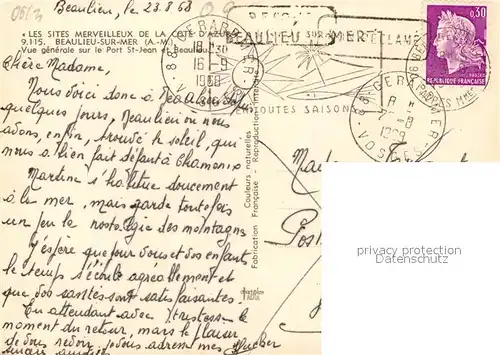 Beaulieu, le 23.8.68
« LES SITES MERVEILLEUX DE LA COTE D'AZUR
9.115. BEAULIEU-SUR-MER (A.-M.)
Vue générale sur le Port St-Jean et Beaulieu
BEAULIEU SUR MER
RECLAME
EN TOUTES SAISONS
88 GERARDMER
18 H 30
16 - 9
1968
88 GERARDMER
VOSGES
0,30
REPUBLIQUE FRANÇAISE
Chère Madame,
Nous voici donc à Beaulieu depuis
quelques jours, Beaulieu où nous
avons, enfin, trouvé le soleil, qui
nous a bien fait défaut à Chamonix
Martine s'habitue doucement
à la mer, mais garde toutefois
un peu la nostalgie des montagnes
J'espère que pour vous et vos enfants
le temps s'écoule agréablement et
que vos santés sont satisfaisantes.
En attendant avec tristesse le
moment du retour, mais le plaisir
de vous revoir, je vous adresse mes
Couleurs naturelles
Fabrication Française - Reproduction interdite
privacy protection
for personal data